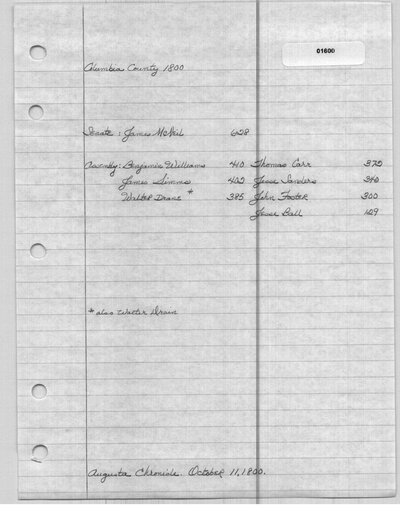 01600
Columbia County 1800
Senate: James McNeil 628
Assembly: Benjamin Williams 410 Thomas Carr 372
James Simms 402 Jesse Sanders 340
Walter Drane * 385 John Foster 300
Jesse Ball 109
* also Walter Drain
Augusta Chronicle. October 11, 1800.